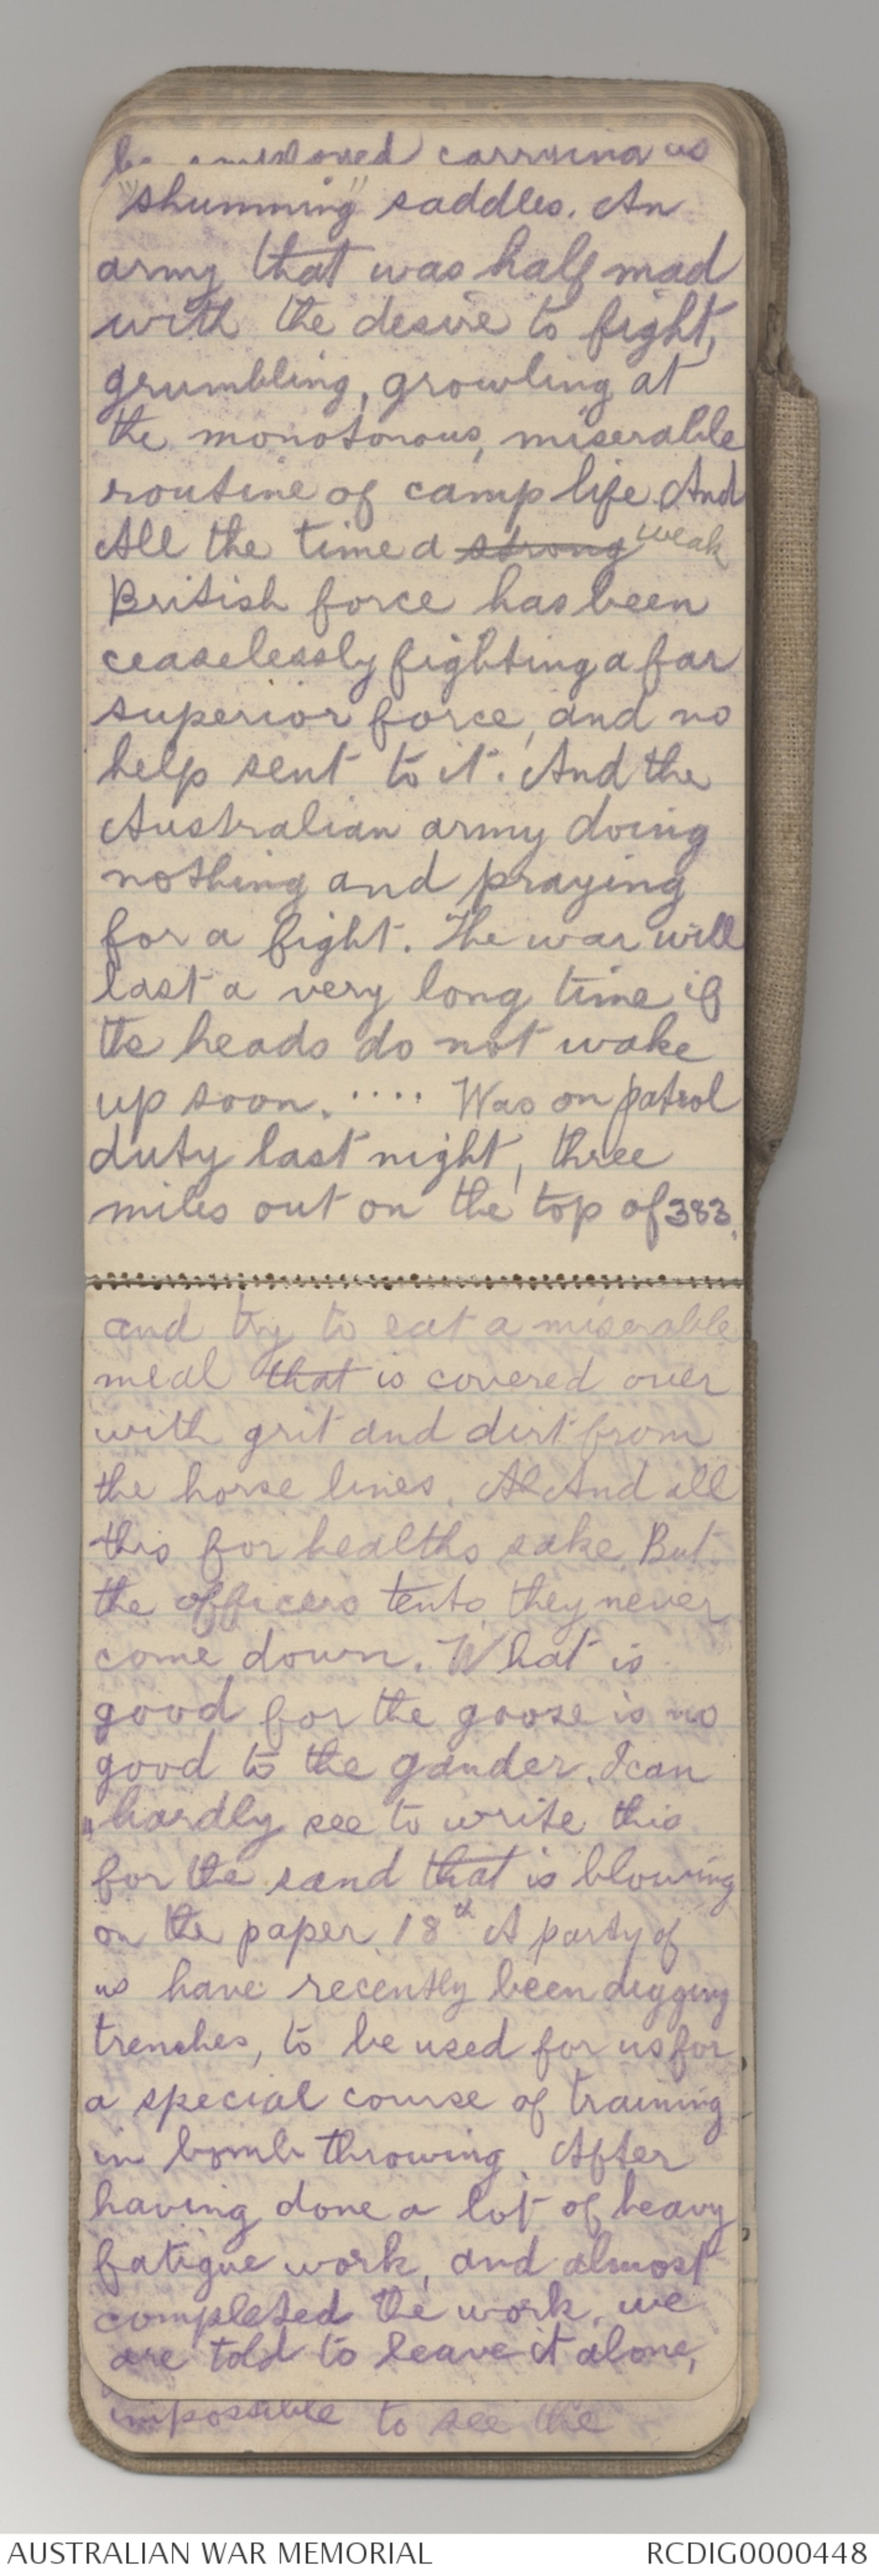 carrying us
"shumming" saddles. An
army that was half mad
with the desire to fight,
grumbling, growling at
the monotonous, miserable
routine of camp life. And
All the time a strong weak
British force has been
ceaselessly fighting a far
superior force, and no
help sent to it. And the
Australian army doing
nothing and praying
for a fight. The war will
last a very long time if
the heads do not wake
up soon. .... Was on patrol
duty last night, three
miles out on the top of 383.
and try to eat a miserable
meal that is covered over
with grit and dirt from
the horse lines. Al And all
this for healths sake. But
the officers tents they never
come down. What is
good for the goose is no
good to the gander. I can
hardly see to write this
for the sand that is blowing
on the paper. 18th A party of
us have recently been digging
trenches, to be used for us for
a special course of training
in bomb throwing. After
having done a lot of heavy
fatigue work, and almost
completed the work, we
are told to leave it alone,
impossible to see the
AUSTRALIAN WAR MEMORIAL
RCDIG0000448